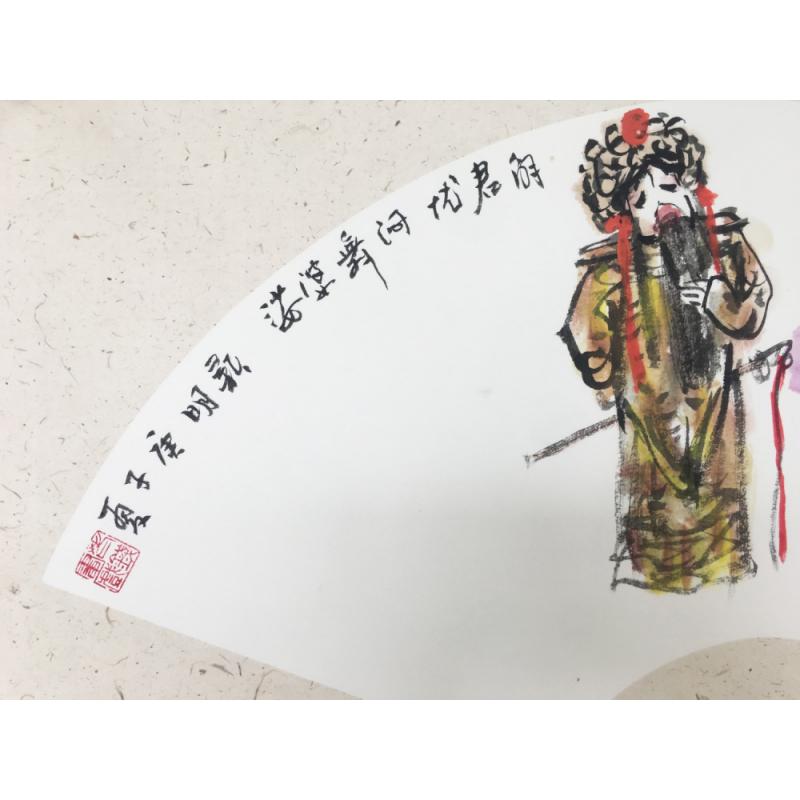 解君忧闷舞婆娑
明庚子夏